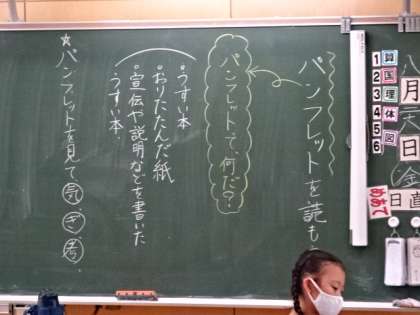 月
日
金
日直
めあて
1 算
2 国
3 理
4 体
5 図
6
パンフレットを読も
パンフレットって、何だ?
・うすい本
・おりたたんだ紙
・宣伝や説明などを書いた
うすい本。
☆パンフレットを見て 気 ぎ 考